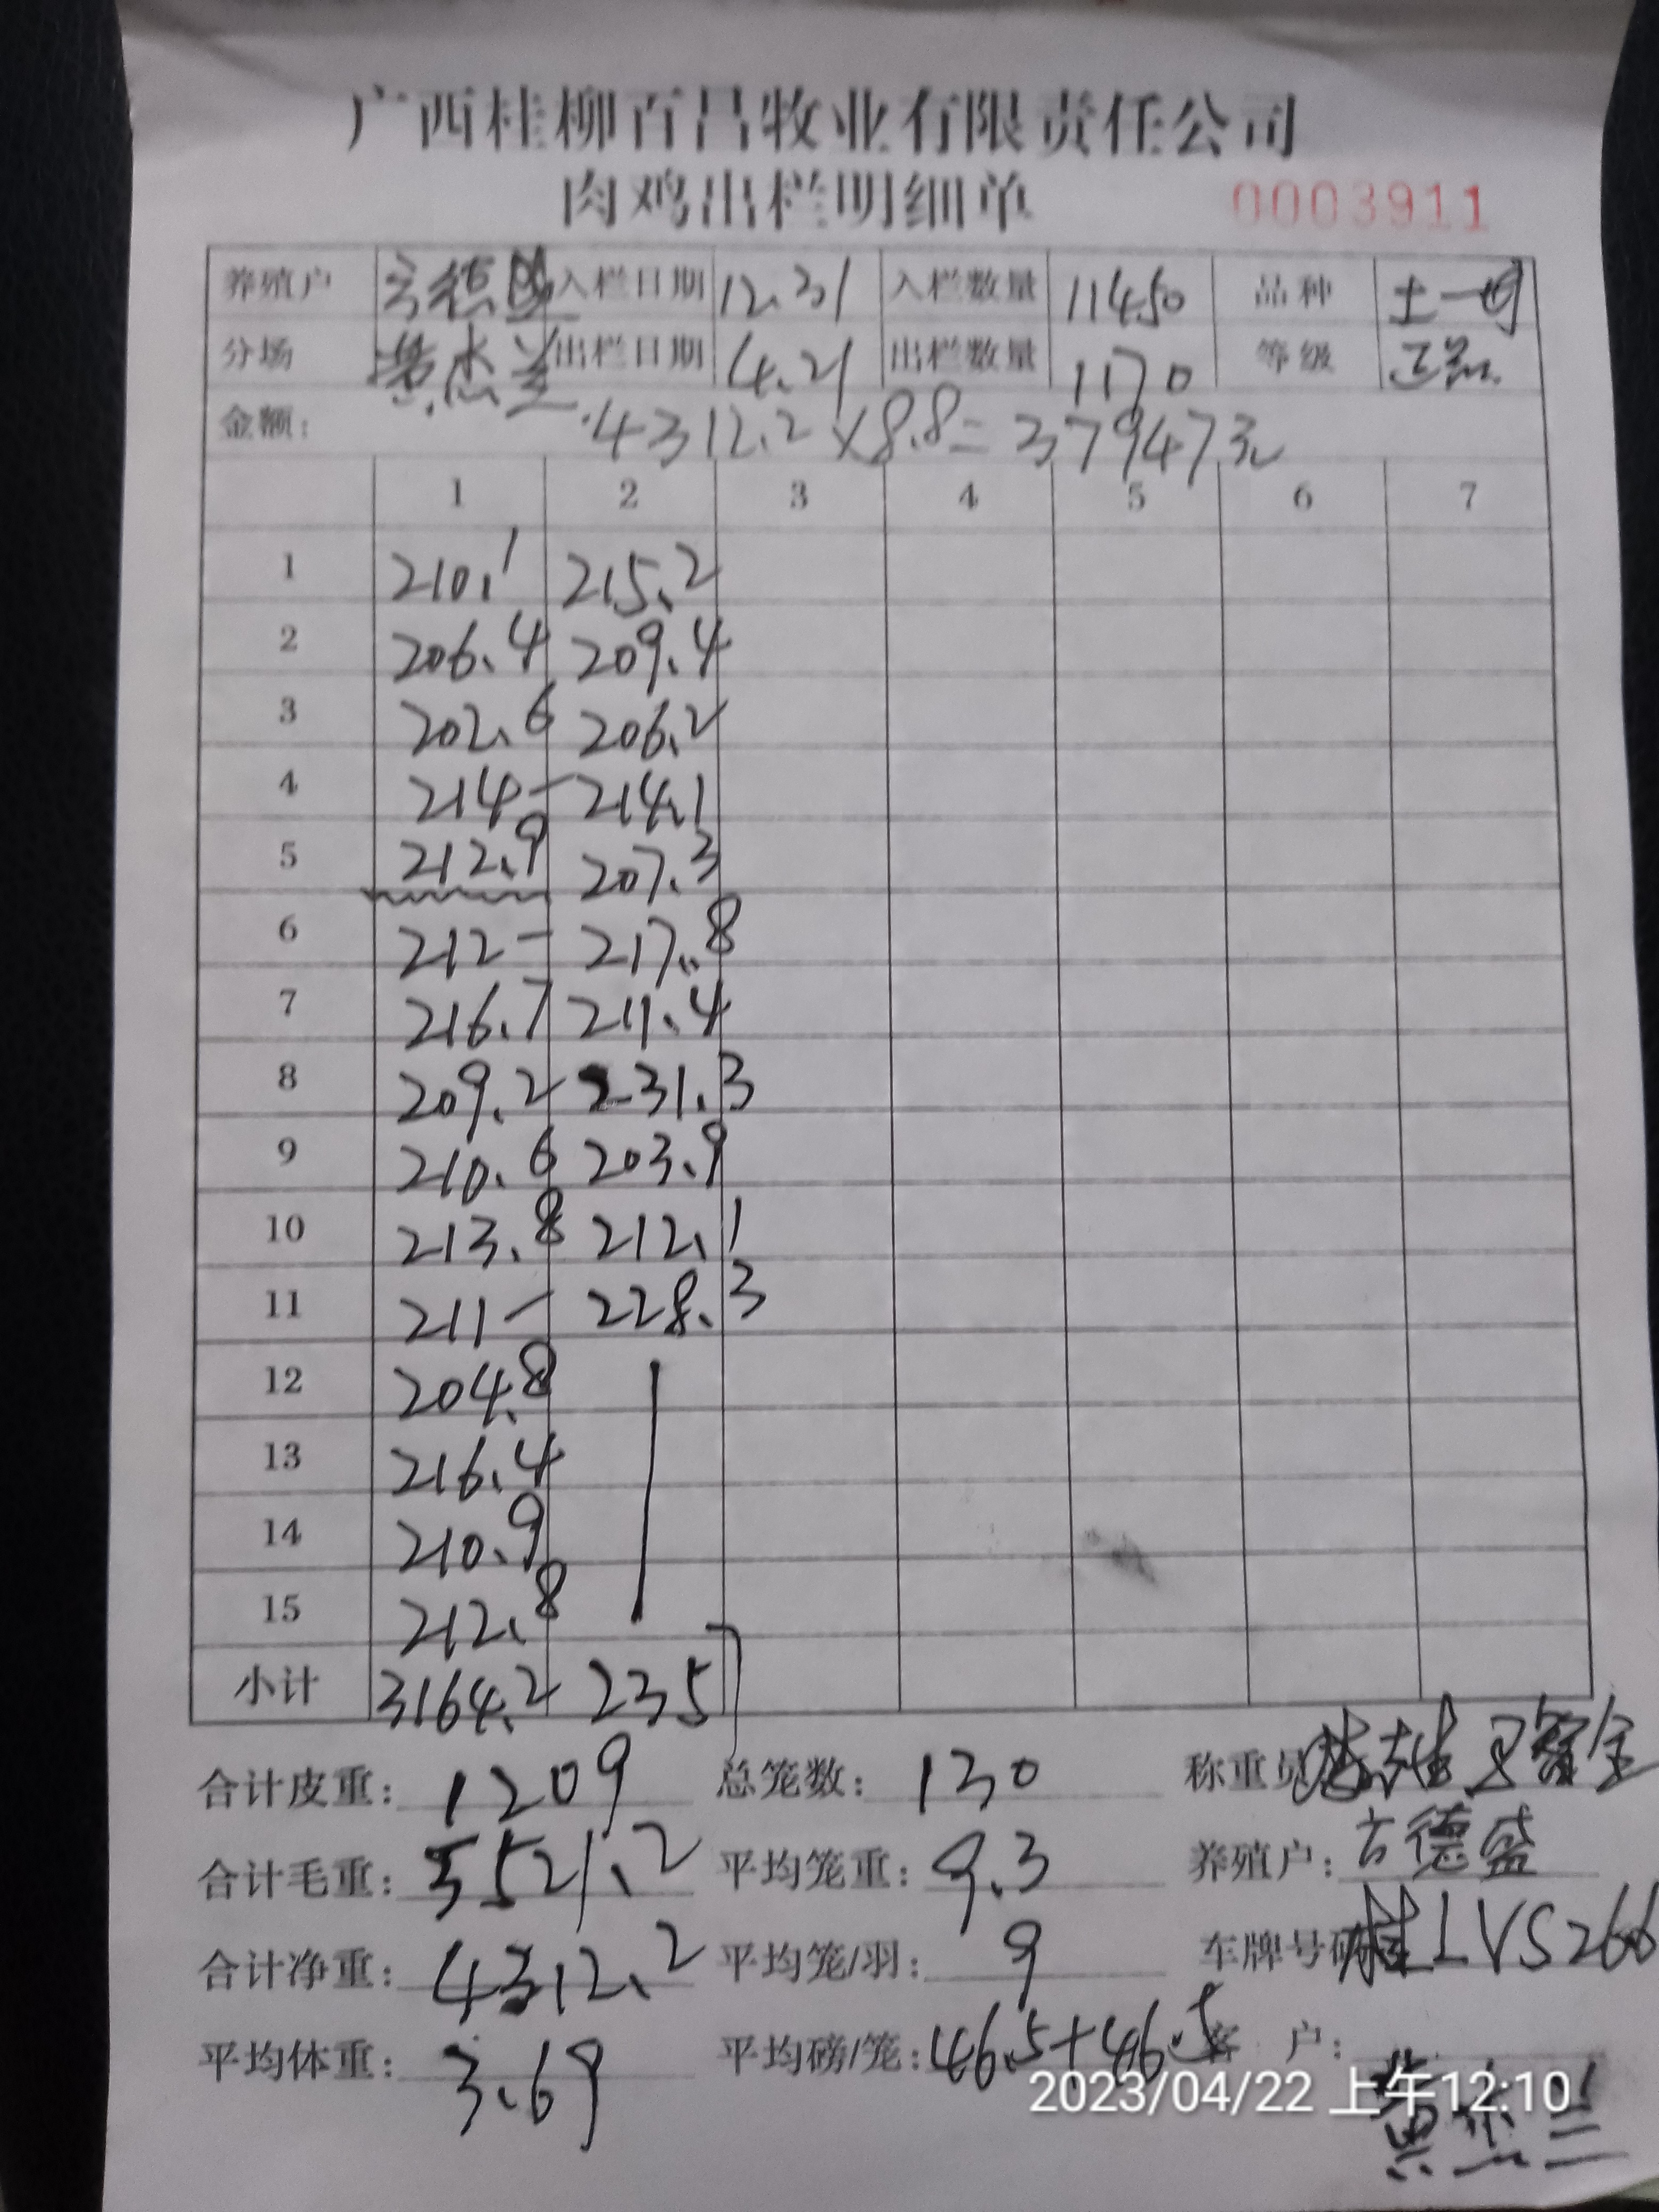 广西桂柳百昌牧业有限责任公司
肉鸡出栏明细单 0003911
养殖户 入栏日期 12.31 入栏数量 11450 品种 土一
分场 出栏日期 4.21 出栏数量 1170 等级
金额: 4312.2×8.8=37947元
1 2 3 4 5 6 7
1 210.1 215.2
2 206.4 209.4
3 202.6 206.2
4 214- 214.1
5 212.9 207.3
6 212- 217.8
7 216.7 211.4
8 209.2 231.3
9 210.6 203.9
10 213.8 212.1
11 211- 228.3
12 204.8
13 216.4
14 210.9
15 212.8
小计 3164.2 2357
合计皮重: 1209 总笼数: 130 称重员
合计毛重: 5521.2 平均笼重: 9.3 养殖户: 古德盛
合计净重: 4312.2 平均笼/羽: 9 车牌号码 桂LVS266
平均体重: 3.69 平均磅/笼: 46.5+46.5 客户:
2023/04/22 上午12:10